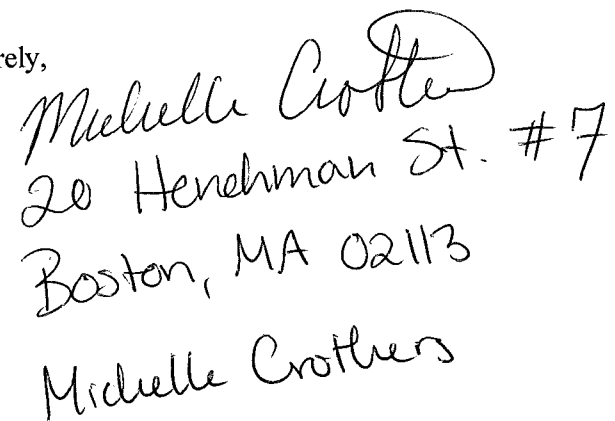 rely,
Michelle Crothers
20 Henchman St. #7
Boston, MA 02113
Michelle Crothers